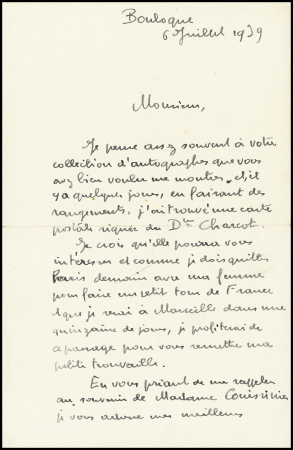 Boulogne
6 Juillet 1939
Monsieur,
Je pense assez souvent à votre
collection d'autographes que vous
avez bien voulu me montrer. et il
y a quelques jours, en faisant des
rangements, j'ai trouvé une carte
postale signée du Dr Charcot.
Je crois qu'elle pourra vous
intéresser et comme je dois quitter
Paris demain avec ma femme
pour faire un petit tour de France
et que je serai à Marseille dans une
quinzaine de jours, je profiterai de
ce passage pour vous remettre ma
petite trouvaille.
En vous priant de me rappeler
au souvenir de Madame
je vous adresse mes meilleurs